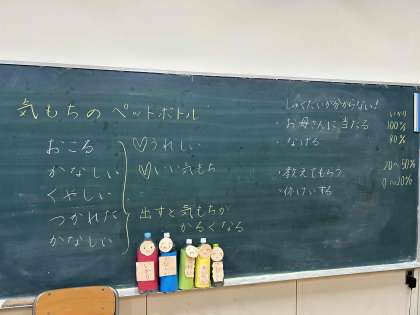 気もちのペットボトル
おこる
かなしい
くやしい
つかれた
かなしい
♡うれしい
♡いい気もち
出すと気もちが
かるくなる
しゅくだいが分からない!
いかり
・お母さんに当たる 100%
・なげる 80%
・教えてもらう 20～50%
・休けいする 0～20%
いかり